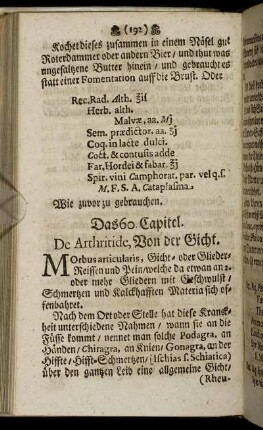 (192)
Kochet dieses zusammen in einem Nösel gut
Roterdammer oder andern Bier / und thut was
ungesaltzene Butter hinein / und gebrauchtes
statt einer Fomentation auff die Brust. Oder
Rec. Rad. Alth. ℥iſ
Herb. alth.
Malvæ, aa. Mj
Sem. prædictor. aa. ℥j
Coq. in lacte dulci.
Coct. & contusis adde
Far. Hordei & fabar. ℥j
Spir. vini Camphorat. par. vel q. ſ.
M. F. S. A. Cataplasma.
Wie zuvor zu gebrauchen.
Das 60. Capitel.
De Arthritide, Von der Gicht.
Morbus articularis, Gicht- oder Glieder-
Reissen und Pein / welche da etwan an 2.
oder mehr Gliedern mit Geschwulst /
Schmertzen und Kalckhafften Materia sich of-
fenbahret.
Nach dem Ort oder Stelle hat diese Kranck-
heit unterschiedene Nahmen / wann sie an die
Füsse kommt / nennet man solche Podagra, an
Händen / Chiragra, an Knien / Gonagra, an der
Hiffte / Hifft-Schmertzen / (Ischias s. Schiatica)
über den gantzen Leib eine allgemeine Gicht /
(Rheu-